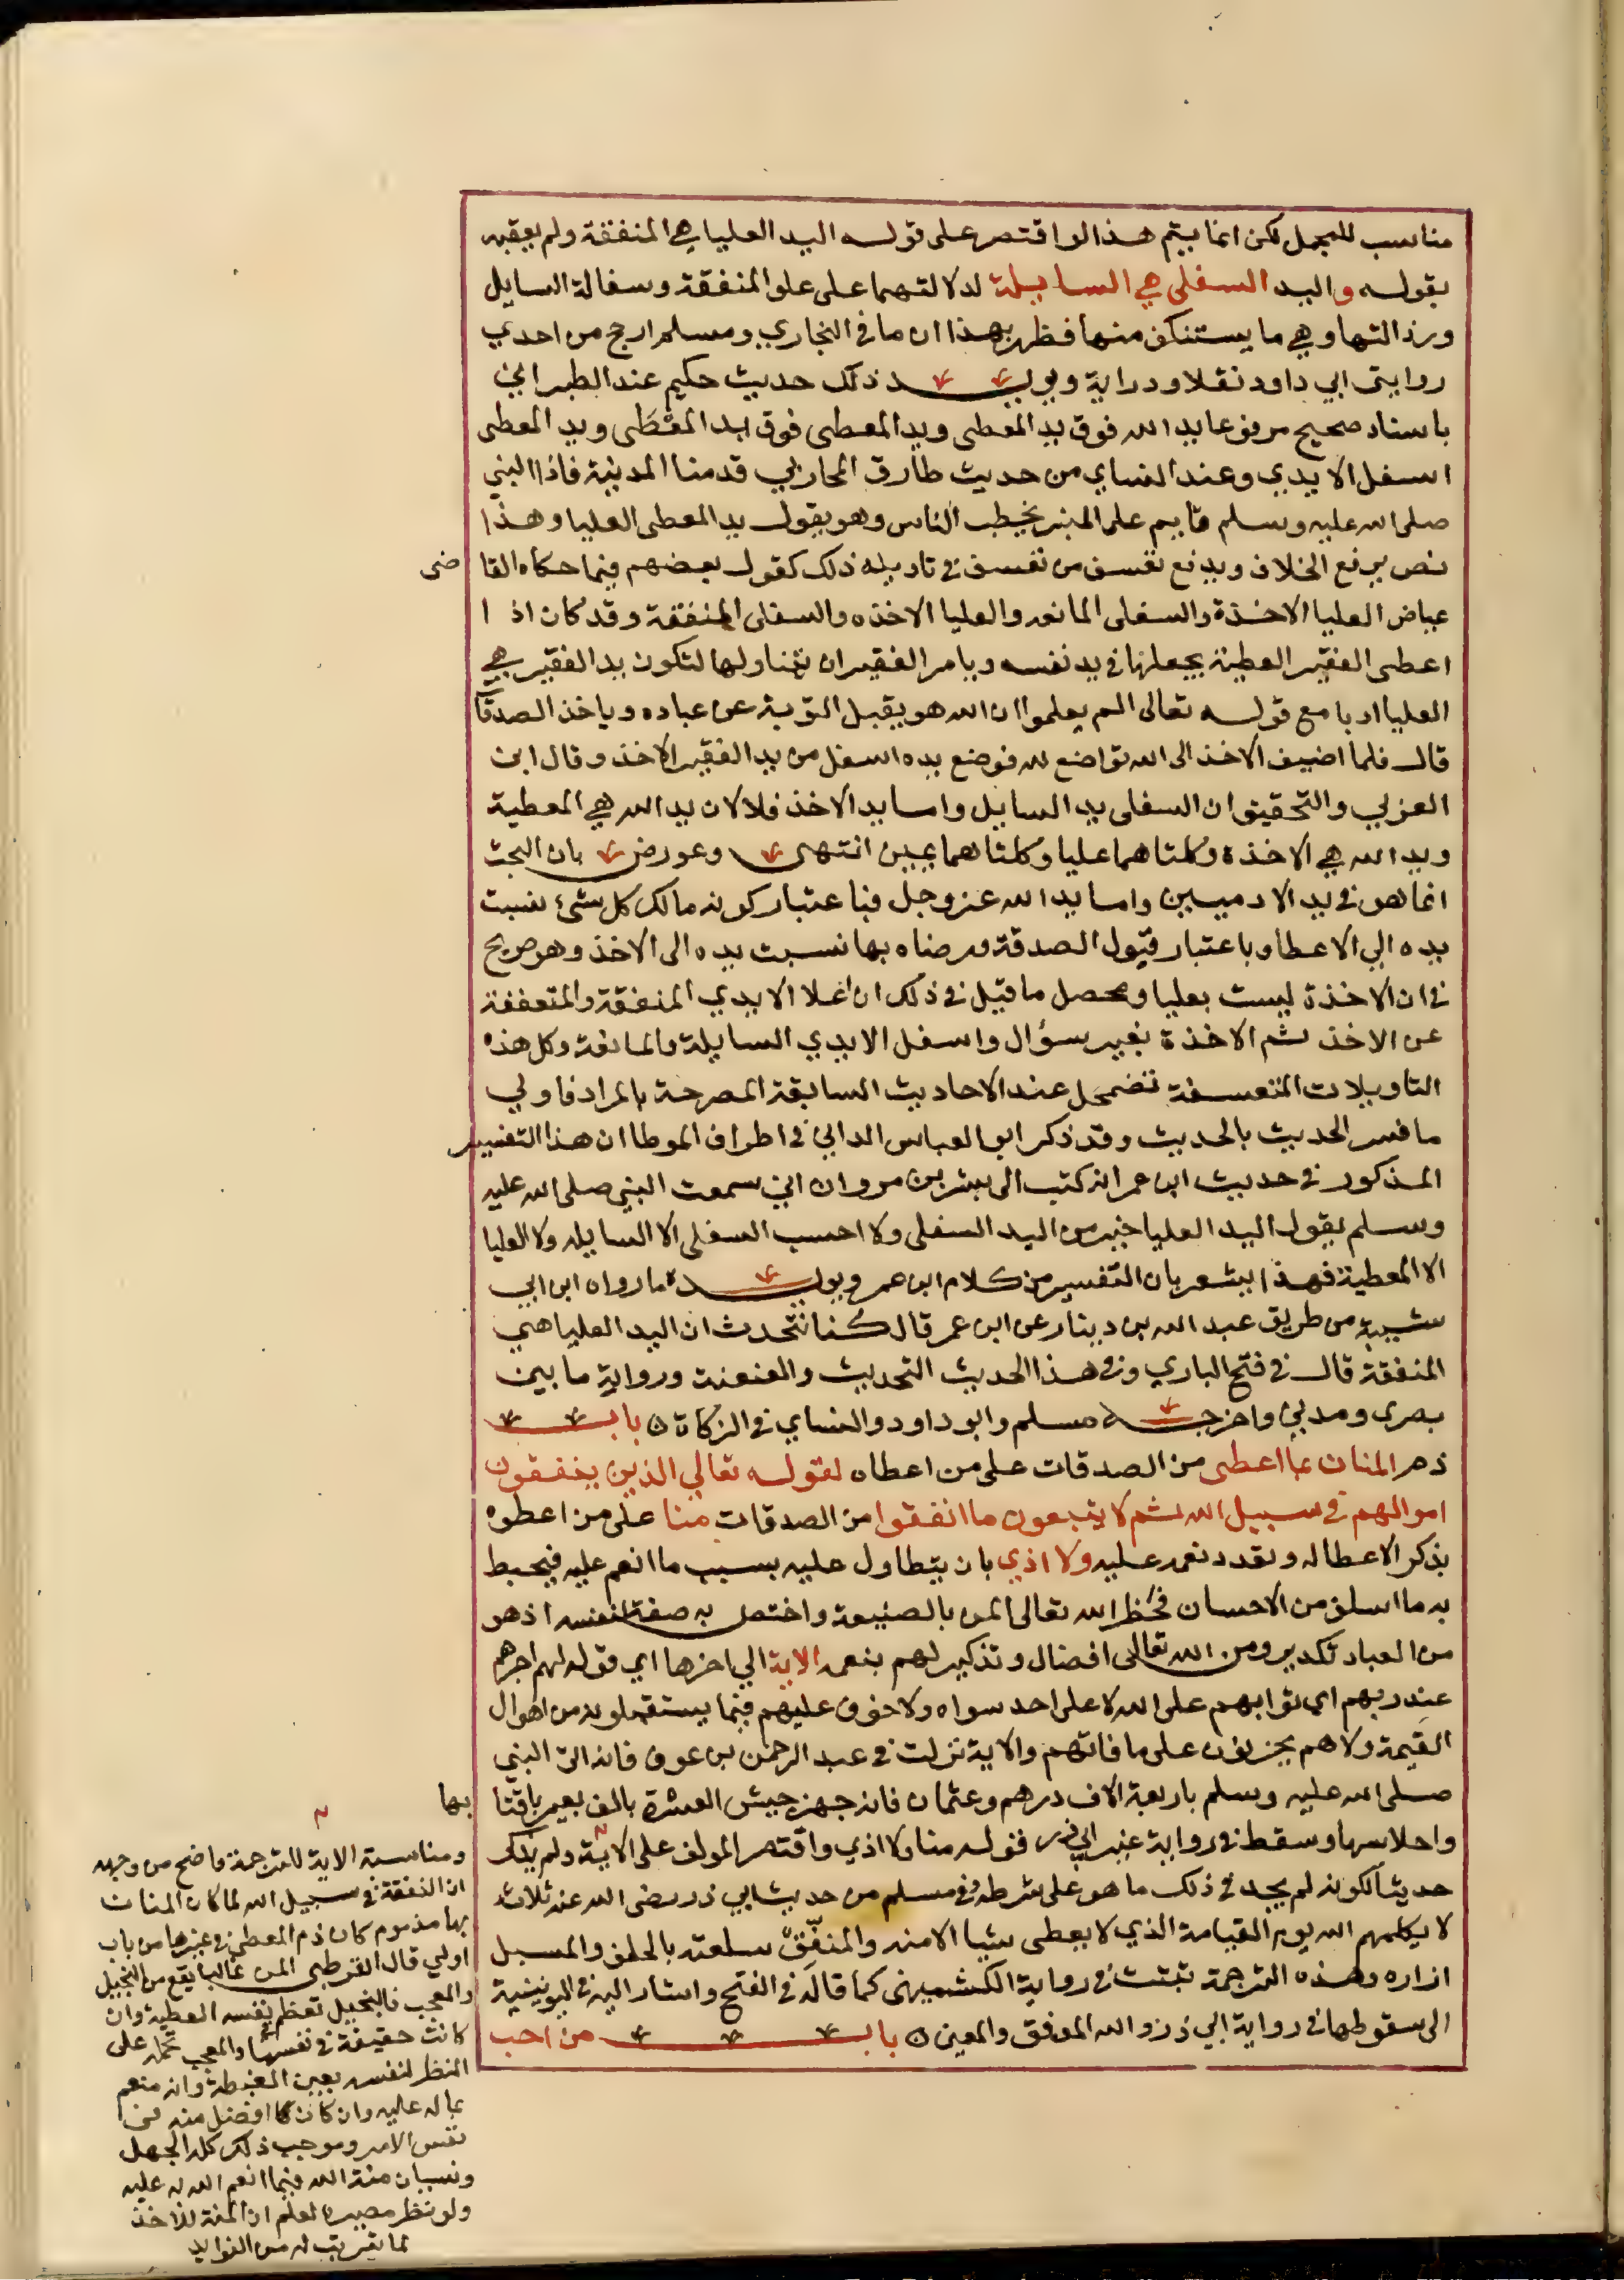 مناسب للمجمل لكن انما يتم هذا لو اقتصر على قوله اليد العليا هي المنفقة ولم يعقبه
بقوله واليد السفلى هي السايلة لدلالتهما على علو المنفقة وسفالة السايل
ورذالتها وهي ما يستنكف منها فظهر بهذا ان ما في البخاري ومسلم ارجح من احدي
روايتى ابي داود نقلا ودراية ويويد ذلك حديث حكيم عند الطبراني
باسناد صحيح مرفوعا يد الله فوق يد المعطى ويد المعطى فوق يد المعْطَى ويد المعطى
اسفل الايدي وعند النساي من حديث طارق المحاربي قدمنا المدينة فاذا النبي
صلى الله عليه وسلم قايم على المنبر يخطب الناس وهو يقول يد المعطى العليا وهذا
نص يرفع الخلاف ويدفع تعسف من تعسف في تاويله ذلك كقول بعضهم فيما حكاه القا ضى
عياض العليا الاخذة والسفلى المانعه والعليا الاخذه والسفلى المنفقة وقد كان اذ ا
اعطى الفقير العطية يجعلها في يد نفسه ويامر الفقير ان يتناولها لتكون يد الفقير هي
العليا ادبا مع قوله تعالى الم يعلموا ان الله هو يقبل التوبة عن عباده وياخذ الصدقا
قال فلما اضيف الاخذ الى الله تواضع لله فوضع يده اسفل من يد الفقير الاخذ وقال ابن
العربي والتحقيق ان السفلى يد السايل واما يد الاخذ فلا لان يد الله هي المعطية
ويد الله هي الاخذة وكلتاهما عليا وكلتاهما يمين انتهى وعورض بان البحث
انما هو في يد الادميين واما يد الله عز وجل فباعتبار كونه مالك كل شئ نسبت
يده الي الاعطا وباعتبار قبول الصدقة ورضاه بها نسبت يده الى الاخذ وهو صريح
في ان الاخذة ليست بعليا ومحصل ما قيل في ذلك ان اعلا الايدي المنفقة والمتعففة
عن الاخذ ثم الاخذة بغير سؤال واسفل الايدي السايلة والمانعة وكل هذه
التاويلات المتعسفة تضمحل عند الاحاديث السابقة المصرحة بالمراد فاولي
ما فسر الحديث بالحديث وقد ذكر ابو العباس الداني في اطراف الموطا ان هذا التفسير
المذكور في حديث ابن عمر انه كتب الى بشر بن مروان اني سمعت النبي صلى الله عليه
وسلم يقول اليد العليا خير من اليد السفلى ولا احسب السفلى الا السايله ولا العليا
الا المعطية فهذا يشعر بان التفسير من كلام ابن عمر ويويده ما رواه ابن ابي
شيبة من طريق عبد الله بن دينار عن ابن عمر قال كنا نتحدث ان اليد العليا هي
المنفقة قال في فتح الباري وفي هذا الحديث التحديث والعنعنة ورواية ما بين
بصرى ومدني واخرجه مسلم وابو داود والنساي في الزكاة باب
ذم المنان بما اعطى من الصدقات على من اعطاه لقوله تعالي الذين ينفقون
اموالهم في سبيل الله ثم لا يتبعون ما انفقوا من الصدقات منا على من اعطوه
بذكر الاعطا له وتعدد نعمه عليه ولا اذي بان يتطاول عليه بسبب ما انعم عليه فيحبط
به ما اسلف من الاحسان فحظر الله تعالى المن بالصنيعة واختص به صفة لنفسه اذ هو
من العباد تكدير ومن الله تعالى افضال وتذكير لهم بنعمه الاية الي اخرها اي قوله لهم اجرهم
عند ربهم اي ثوابهم على الله لا على احد سواه ولا خوف عليهم فيما يستقبلونه من اهوال
القيمة ولا هم يحزنون على ما فاتهم والاية نزلت في عبد الرحمن بن عوف فانه اتى النبي
صلى الله عليه وسلم باربعة الاف درهم وعثمان فانه جهز جيش العسرة بالف بعير باقتا بها
واحلاسها وسقط في رواية غير ابي ذر قوله منا ولا اذي واقتصر المولف على الاية ولم يذكر
حديثا لكونه لم يجد في ذلك ما هو على شرطه وفي مسلم من حديث ابي ذر رضى الله عنه ثلاثة
لا يكلمهم الله يوم القيامة الذي لا يعطى شيا الا منه والمنفِّق سلعته بالحلف والمسبل
ازاره وهذه الترجمة ثبتت في رواية الكشميهنى كما قاله في الفتح واشار اليه في اليونينية
الى سقوطها في رواية ابي ذر والله الموفق والمعين باب من احب
ومناسبة الاية للترجمة واضح من وجهه
ان النفقة في سبيل الله لما كان المنان
بها مذموم كان ذم المعطى في غيرها من باب
اولي قال القرطبي المن غالبا يقع من البخيل
والمعجب فالبخيل تعظم في نفسه العطية وان
كانت حقيقة في نفسها والمعجب يحمله على
النظر لنفسه بعين العظمة وانه منعم
بماله عليه وان كان افضل منه في
نفس الامر وموجب ذلك كله الجهل
ونسيان منة الله فيما انعم الله به عليه
ولو نظر مصيره لعلم ان المنة للاخذ
لما يترتب له من الفوايد